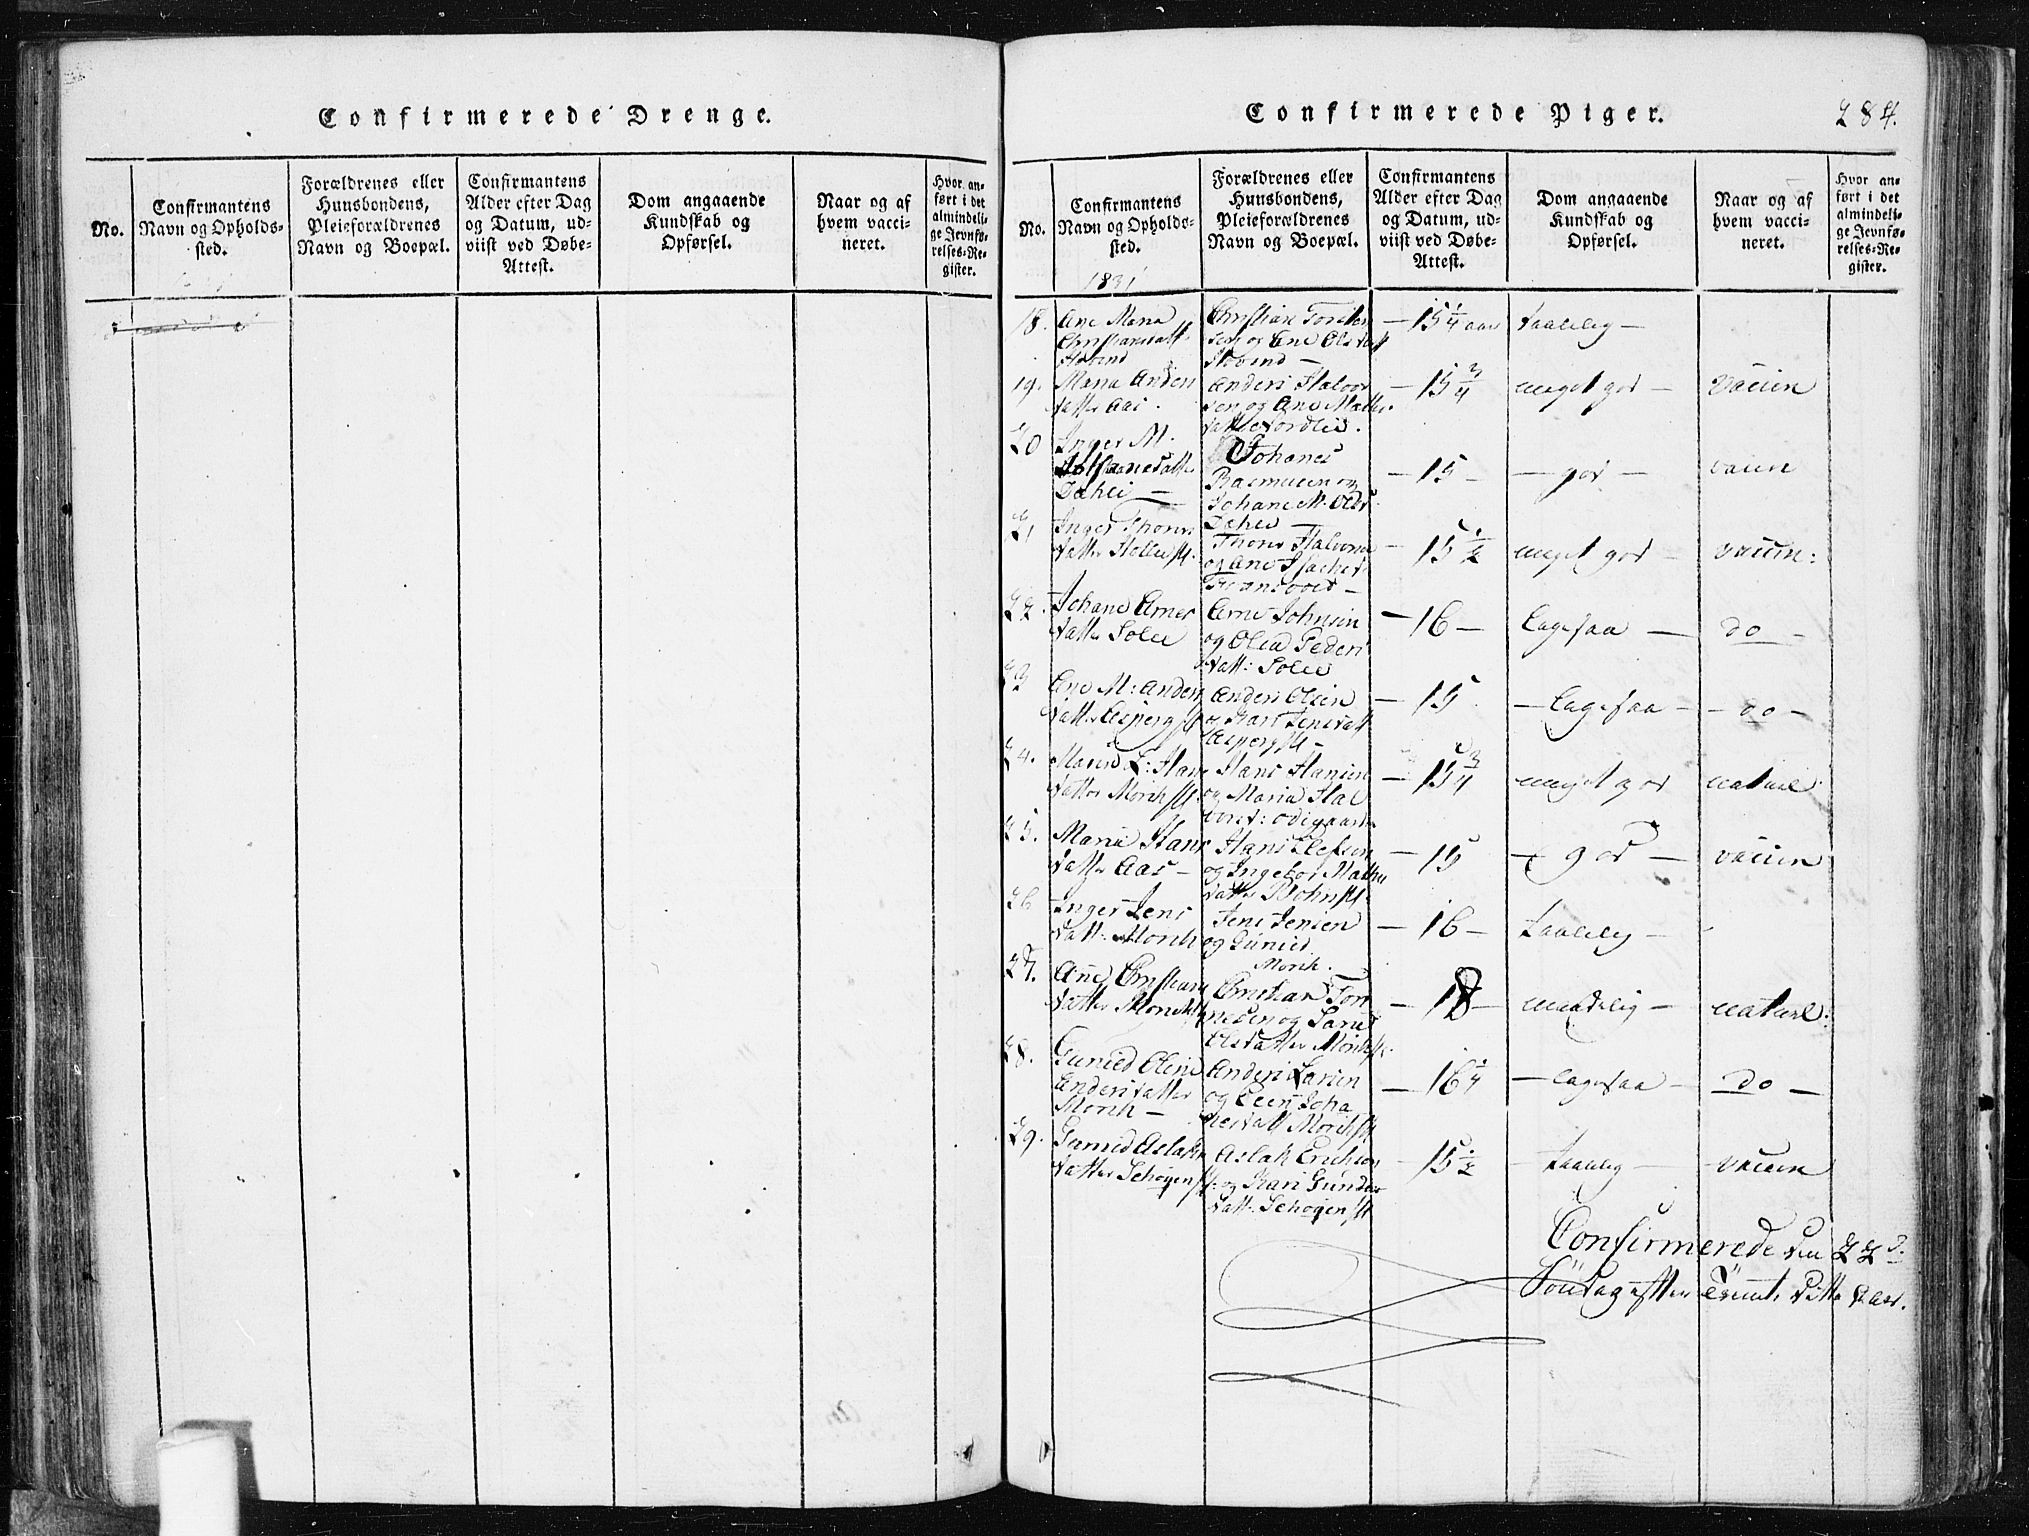 Confirmerede Drenge.
No.
Confirmantens
Navn og Opholds-
sted.
Forældrenes eller
Huusbondens,
Pleieforældrenes
Navn og Boepæl.
Confirmantens
Alder efter Dag
og Datum, ud-
viist ved Døbe-
Attest.
Dom angaaende
Kundskab og
Opførsel.
Naar og af
hvem vacci-
neret.
Hvor an-
ført i det
almindeli-
ge Jevnfø-
relses-Re-
gister.
Confirmerede Piger.
284.
No.
Confirmantens
Navn og Opholds-
sted.
1831
Forældrenes eller
Huusbondens,
Pleieforældrenes
Navn og Boepæl.
Confirmantens
Alder efter Dag
og Datum, ud-
viist ved Døbe-
Attest.
Dom angaaende
Kundskab og
Opførsel.
Naar og af
hvem vacci-
neret.
Hvor an-
ført i det
almindeli-
ge Jevnfø-
relses-Re-
gister.
18.
Ane Maria
Christiansdatt
Hovind
Christian Torsten
sen og Ane Olsdatt
Hovind —
— 15 1/4 aar
taalelig —
19.
Maria Anders
datter Aas.
Anders Halvor
sen og Ane Mathis
datt Nordlie.
— 15 3/4
meget god —
vaccin
20
Inger M.
Johannesdatter
Dahlei —
Johanes
Rasmusen og
Johane M. Olsd
Dahlei
— 15 —
— god —
vaccin
21
Inger Thores
datter
Thore Halvorsen
og Ane
— 15 1/2
meget god —
vaccin:
22.
Johane Arnes
datter Solie
Arne Johnsen
og Olea Peders
datt: Solie
— 16 —
Ligesaa —
do —
23
Ane M: Anders
datter Asperg
Anders Olsen
og Kari Jensdatt
Asperg
— 15
— Ligesaa —
— do —
24.
Maren L: Hans
datter Mørch
Hans Hansen
og Maria Hal
vorsd: Ødegaard
— 15 3/4
meget god
naturl
25.
Maria Hans
datter Aas —
Hans Olefsen
og Ingebor Mathis
datter
— 15
— god —
vaccin
26
Inger Jens
datt. Mørch
Jens Jensen
og Gunild
Mørch.
— 16 —
taalelig —
27.
Ane Christians
datter Mørch
Christian Torn
nesen og
Olsdatter Mørch
— 18 —
maadelig —
naturl:
28.
Gunild Oline
Andersdatter
Mørch —
Anders Larsen
og Elen Joha
nesdatt Mørch
— 16 1/4
— Ligesaa —
Do —
29.
Gunild Aslaks
datter Schøyen
Aslak Erichsen
og Kari Gunders
datt. Schøyen
— 15 1/2
— taalelig —
vaccin
Confirmerede den 22de
Søndag efter Trinit. dette Aar.